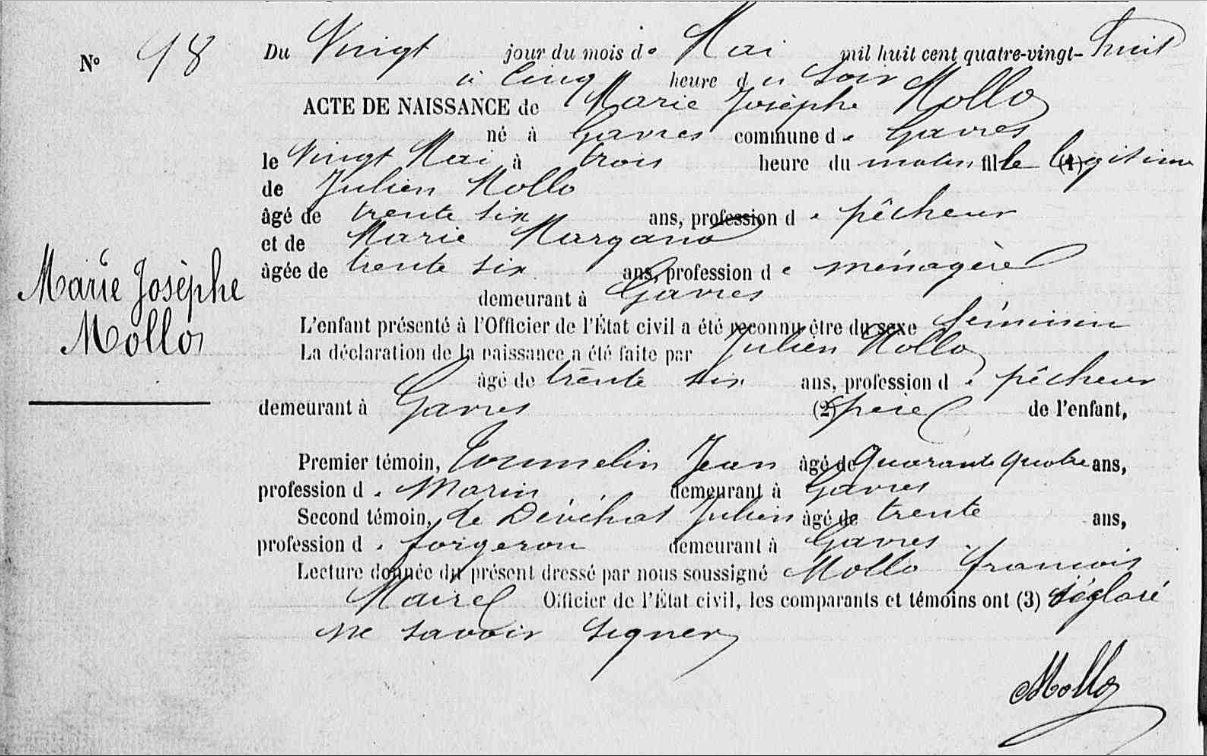 N° 98
Du Vingt jour du mois de Mai mil huit cent quatre-vingt-huit
à cinq heure du Soir
ACTE DE NAISSANCE de Marie Josèphe Mollo
né à Gavres commune de Gavres
le Vingt Mai à trois heure du matin fille (1) légitime
de Julien Mollo
âgé de trente six ans, profession de pêcheur
et de Marie Margano
âgée de trente six ans, profession de ménagère
demeurant à Gavres
Marie Josèphe
Mollo
L'enfant présenté à l'Officier de l'État civil a été reconnu être du sexe féminin
La déclaration de la naissance a été faite par Julien Mollo
âgé de trente six ans, profession de pêcheur
demeurant à Gavres (2) père de l'enfant,
Premier témoin, Tonnelin Jean âgé de Quarante quatre ans,
profession de Marin demeurant à Gavres
Second témoin, Julien âgé de trente ans,
profession de forgeron demeurant à Gavres.
Lecture donnée du présent dressé par nous soussigné Mollo francois
Maire Officier de l'État civil, les comparants et témoins ont (3) déclaré
ne savoir signer
Mollo